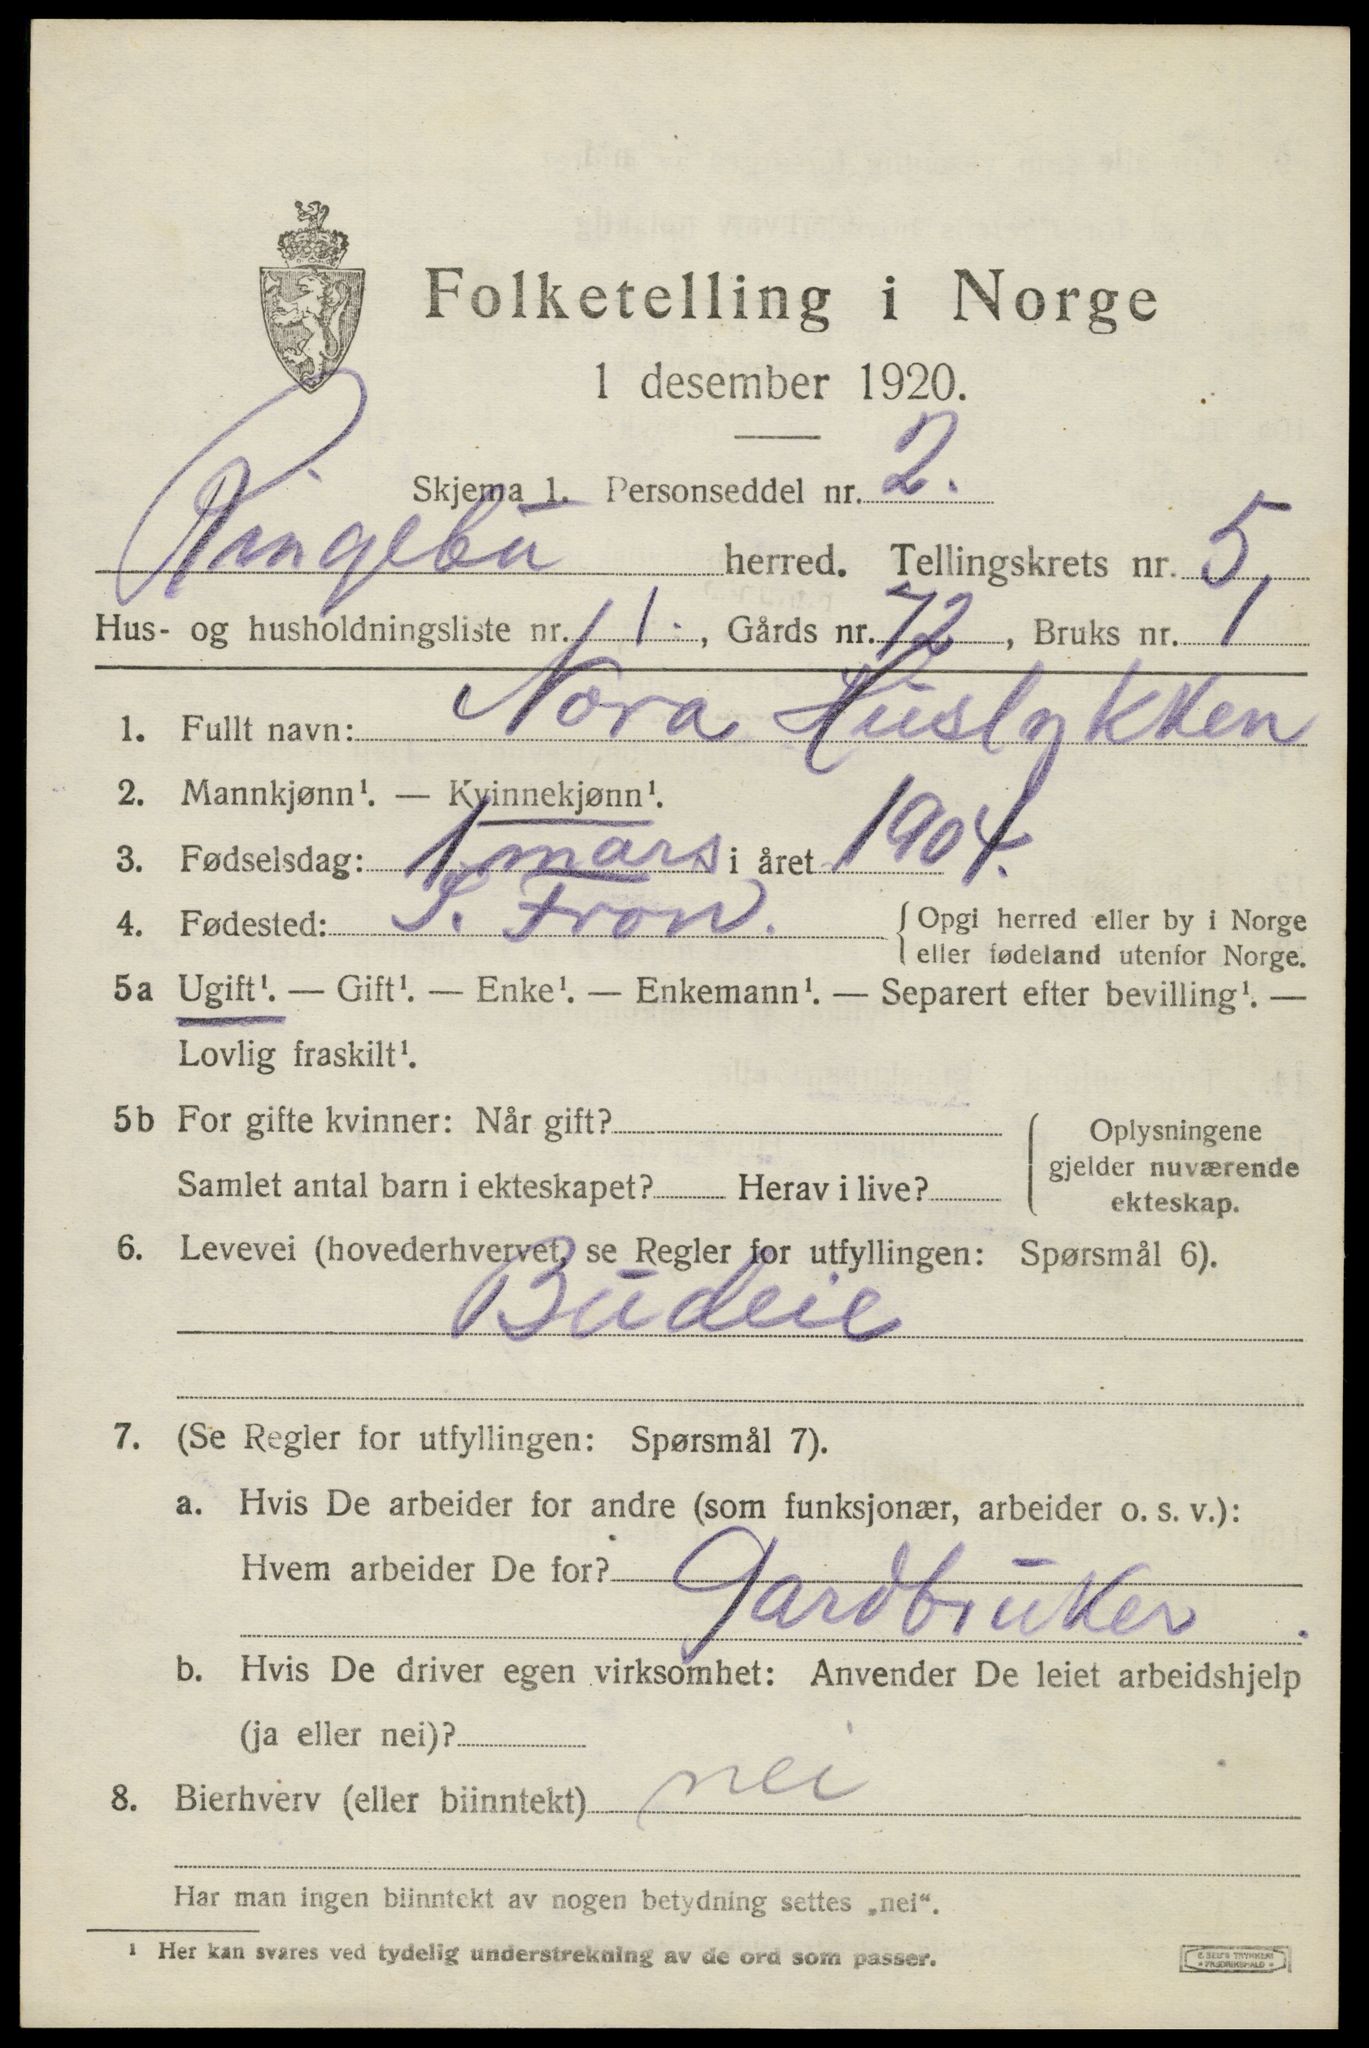 Folketelling i Norge
1 desember 1920.
Skjema 1. Personseddel nr. 2.
Ringebu herred. Tellingskrets nr. 5,
Hus- og husholdningsliste nr. 11., Gårds nr. 72, Bruks nr. 1
1. Fullt navn: Nora Huslykken
2. Mannkjønn¹. — Kvinnekjønn¹.
3. Fødselsdag: 1 mars i året 1904.
4. Fødested: S. Fron. { Opgi herred eller by i Norge
eller fødeland utenfor Norge.
5a Ugift¹. — Gift¹. — Enke¹. — Enkemann¹. — Separert efter bevilling¹. —
Lovlig fraskilt¹.
5b For gifte kvinner: Når gift?
Samlet antal barn i ekteskapet? Herav i live?
{ Oplysningene
gjelder nuværende
ekteskap.
6. Levevei (hovederhvervet, se Regler for utfyllingen: Spørsmål 6).
Budeie
7. (Se Regler for utfyllingen: Spørsmål 7).
a. Hvis De arbeider for andre (som funksjonær, arbeider o. s. v.):
Hvem arbeider De for?
Gardbruker.
b. Hvis De driver egen virksomhet: Anvender De leiet arbeidshjelp
(ja eller nei)?
8. Bierhverv (eller biinntekt) nei
Har man ingen biinntekt av nogen betydning settes „nei“.
¹ Her kan svares ved tydelig understrekning av de ord som passer.